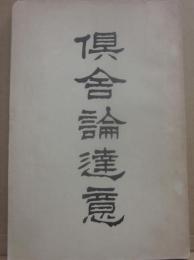 俱舍論達意